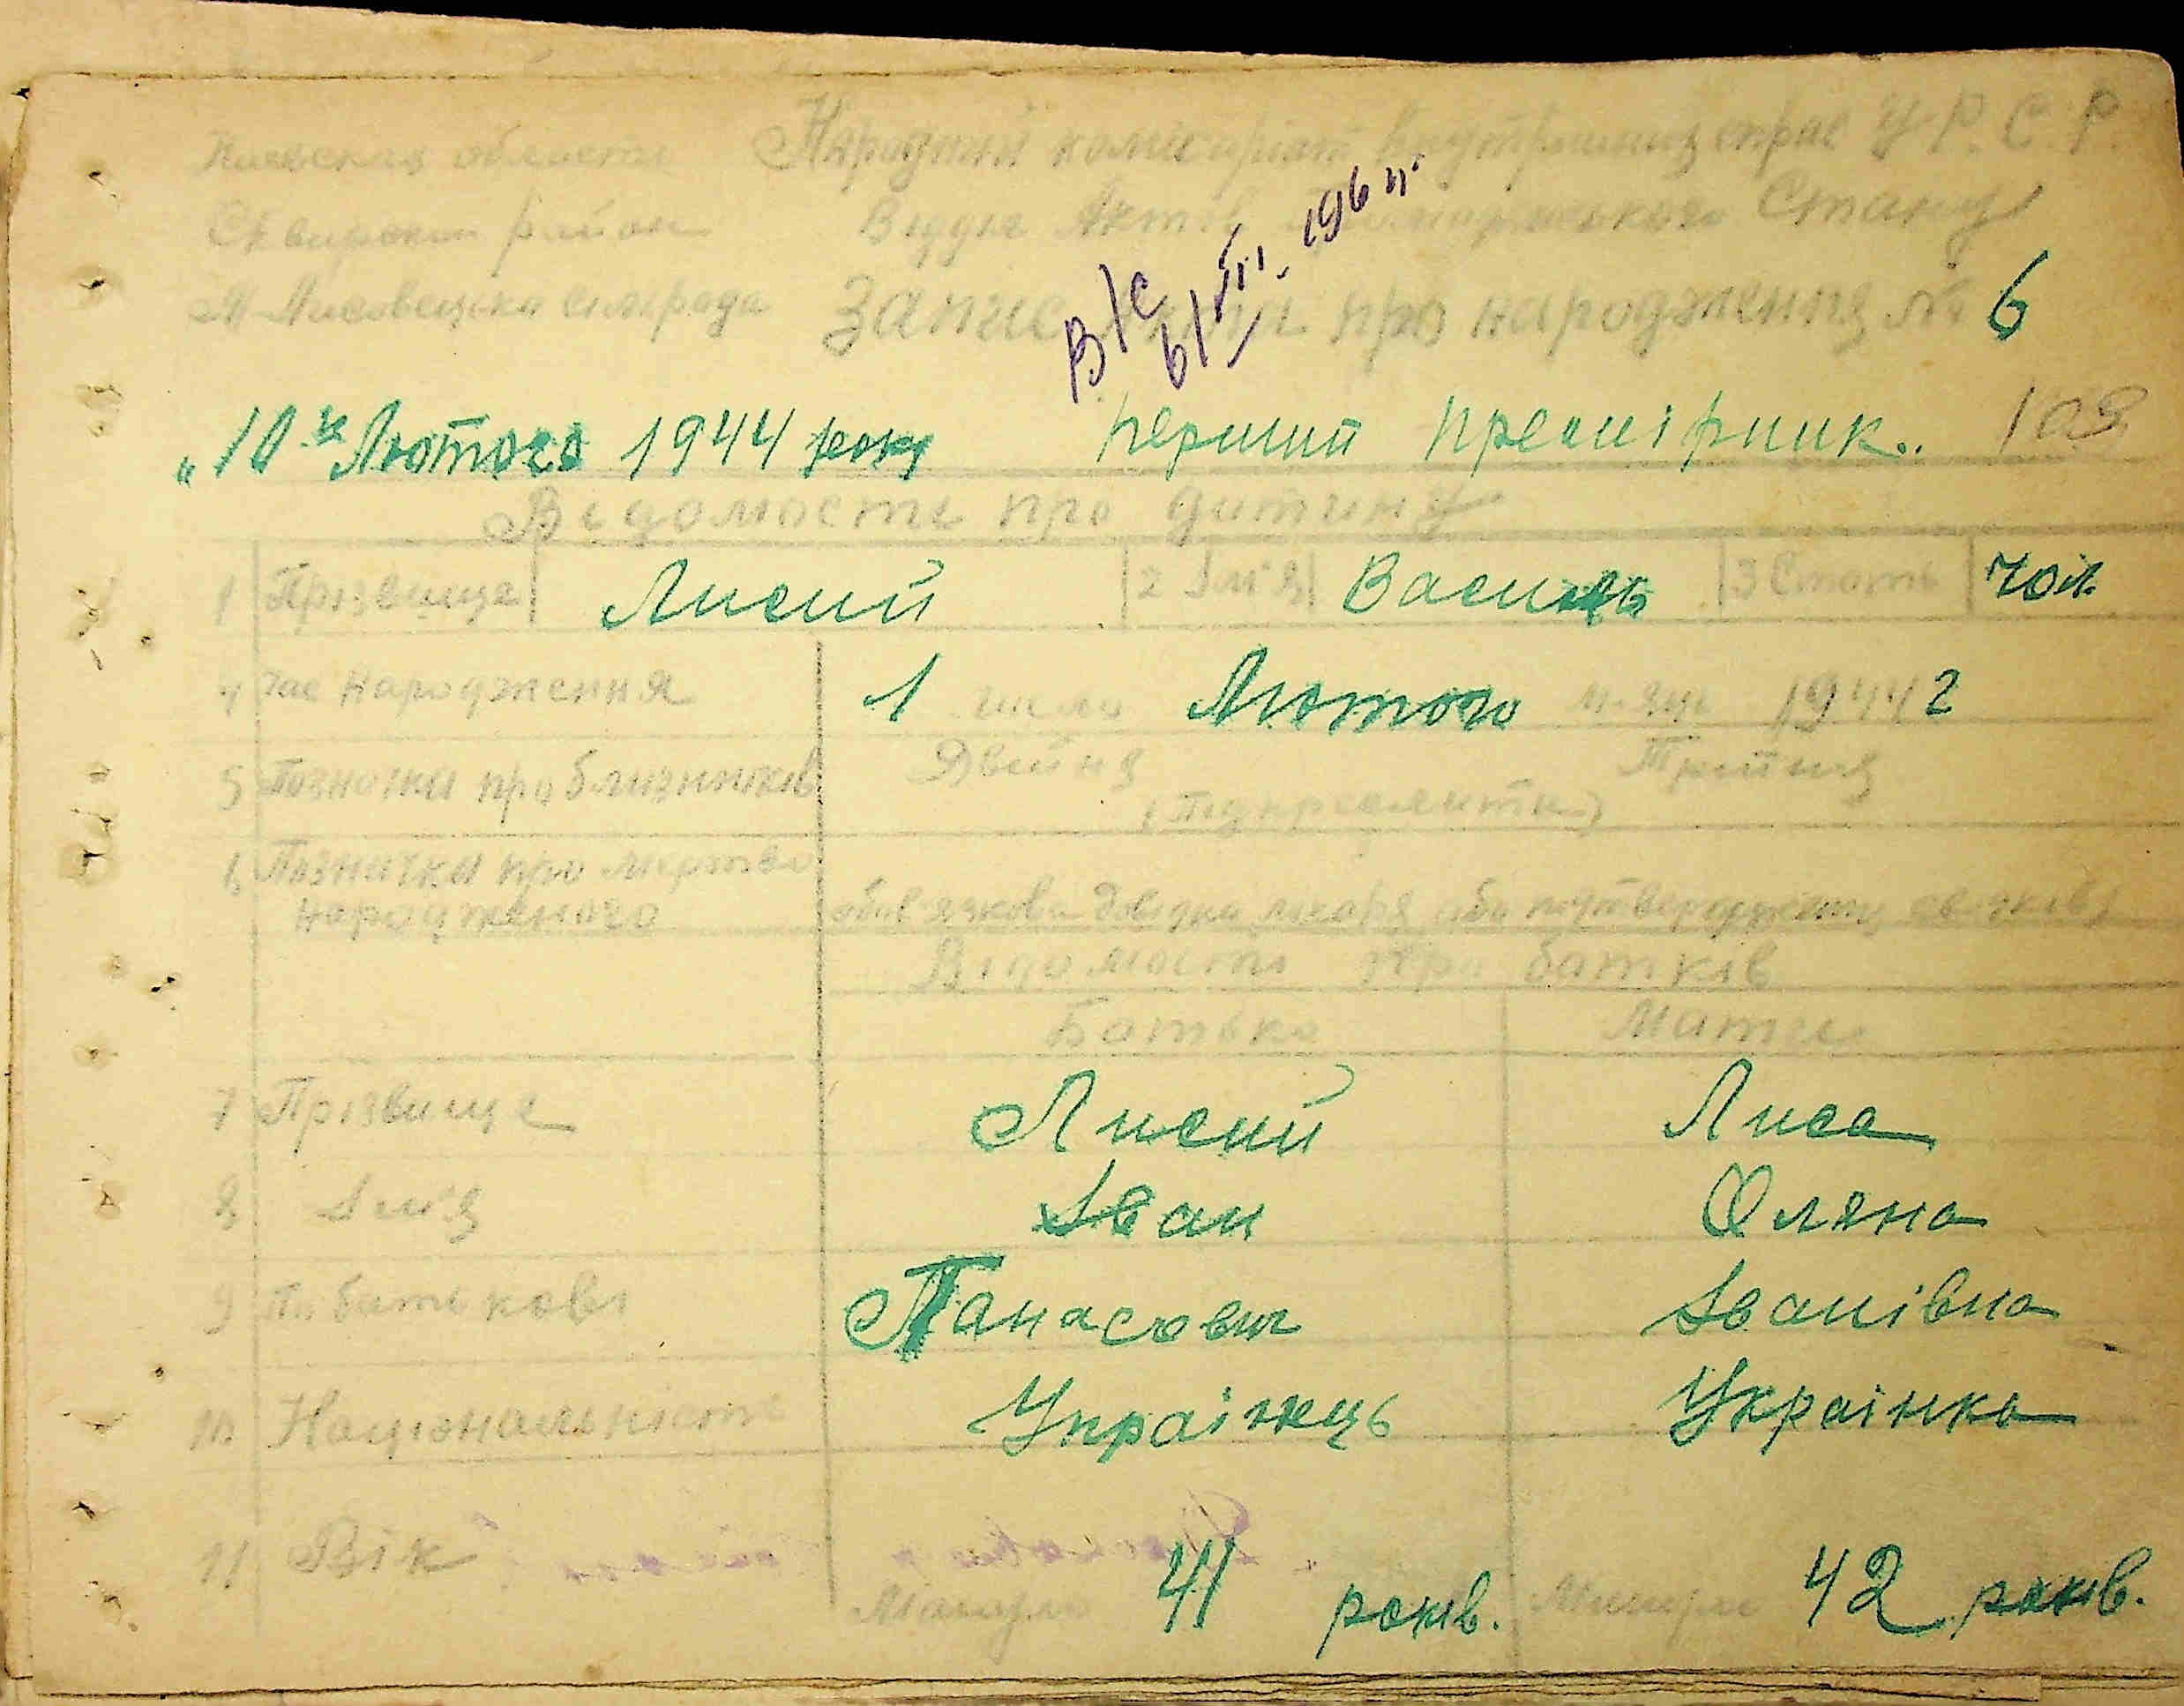 Киевская область Народний комісаріат Внутрішніх справ У.Р.С.Р.
Сквирский район Відділ Актів Громадського Стану
сільрада Запис про народження № 6
В/С 6/VII. 196
"10 го Лютого 1944 року Перший Примірник.. 109
Відомості про дитину
1 Прізвище Лисий 2 Ім'я Василь 3 Стать чол.
4 Час народження 1 числа Лютого м-ця 1944 г
5 Позначка про близнюків Двійня Трійня
(Підкреслити)
6 Позначка про мертво
народженого обов'язкова довідка лікаря або підтвердження свідків)
Відомості про батків
Батько Мати
7 Прізвище Лисий Лиса
8 Ім'я Іван Оляна
9 По батькові Панасович Іванівна
10 Національність Українець Українка
11 Вік Минуло 41 років. Минуло 42 років.